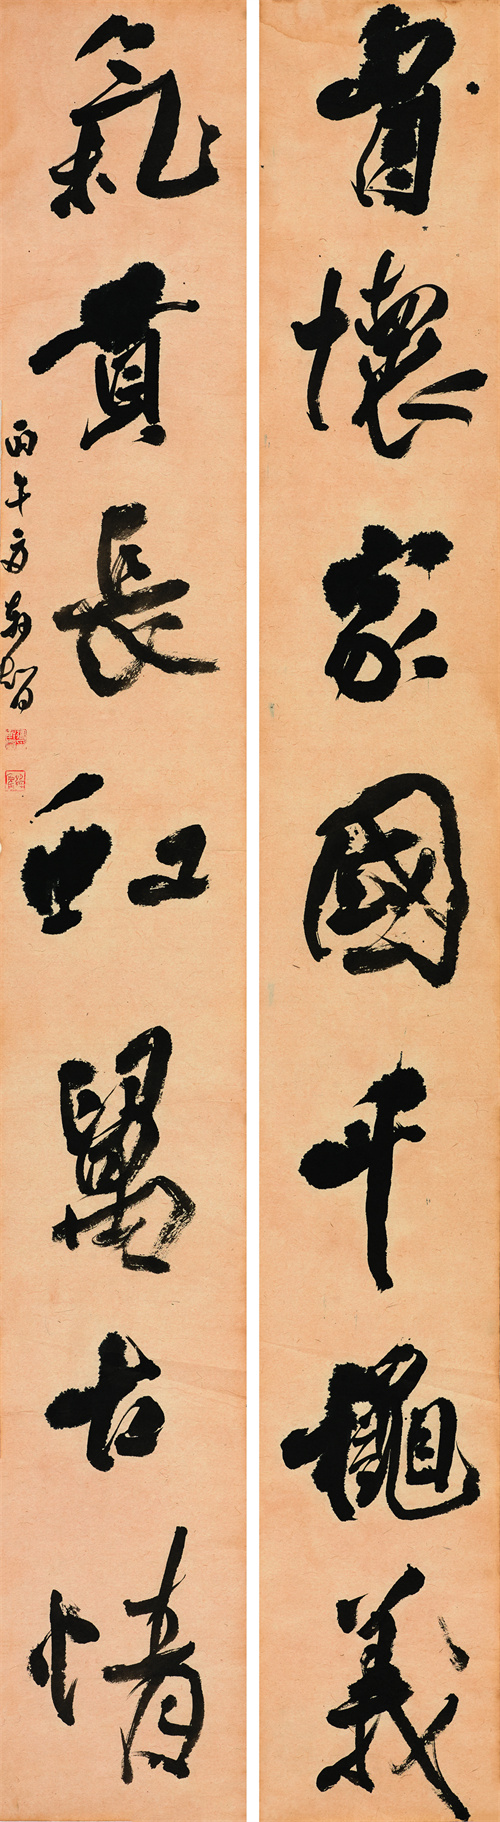 胷懷家國千穐義
氣貫長虹萬古情
丙午